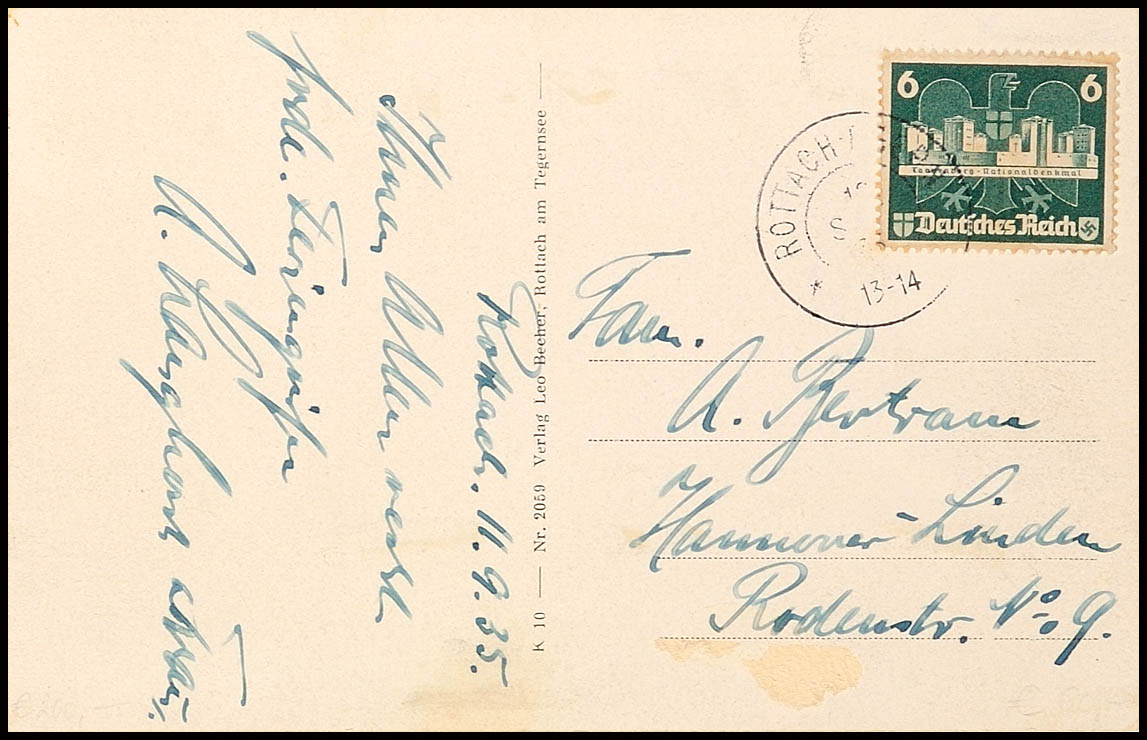 Rottach. 11.9.35.
Ihnen Allen recht
frdl. Feriengrüße
A. u. Frau.
K 10 — Nr. 2059 Verlag Leo Becher, Rottach am Tegernsee —
6 6
Tannenberg-Nationaldenkmal
Deutsches Reich
ROTTACH-
13-14
Fam.
A. Bertram
Hannover-Linden
Rodenstr. No. 9.